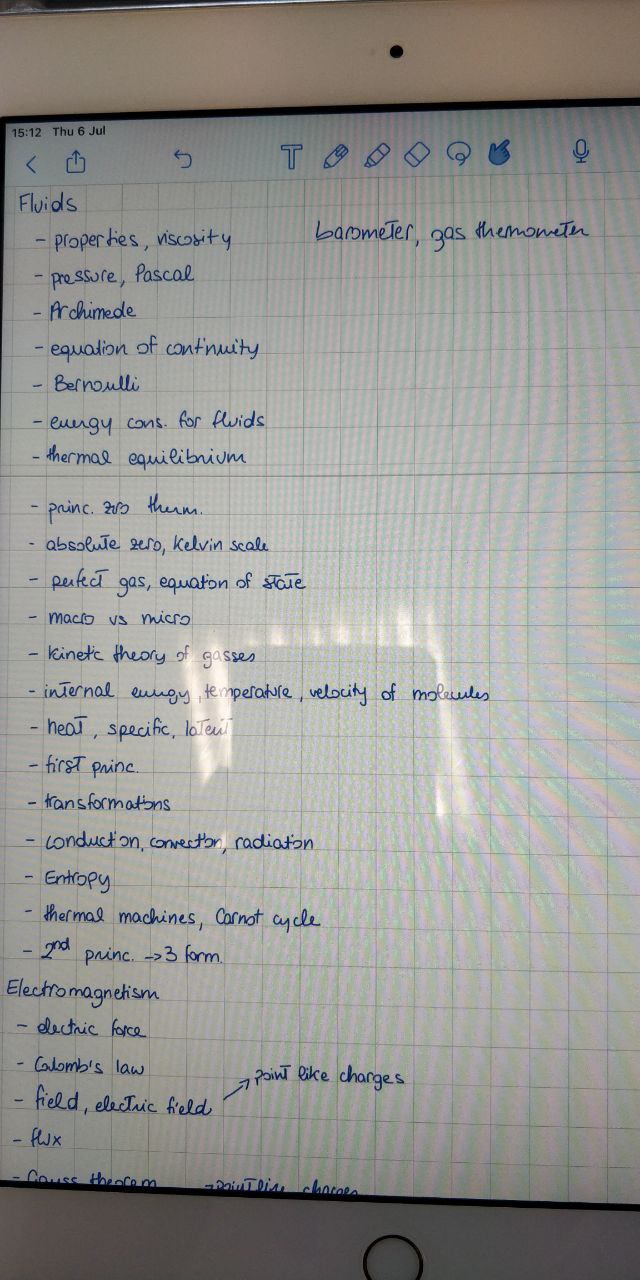 15:12 Thu 6 Jul
Fluids
- properties, viscosity barometer, gas themometer
- pressure, Pascal
- Archimede
- equation of continuity
- Bernoulli
- energy cons. for fluids
- thermal equilibrium
- princ. zro therm.
- absolute zero, Kelvin scale
- perfect gas, equation of state
- macro vs micro
- kinetic theory of gasses
- internal energy, temperature, velocity of molecules
- heat, specific, latent
- first princ.
- transformations
- conduction, convection, radiation
- Entropy
- thermal machines, Carnot cycle
- 2nd princ. -> 3 form.
Electromagnetism
- electric force
- Colomb's law
- field, electric field -> point like charges
- flux
- Gauss theorem -> point like charges